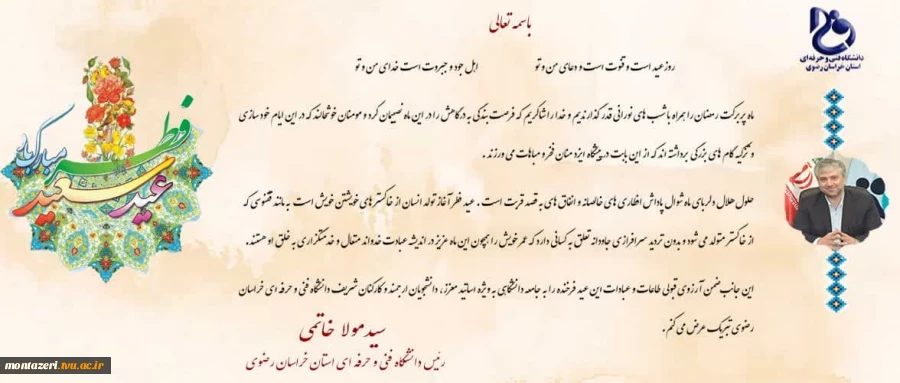 باسمه تعالی
دانشگاه فنی و حرفه ای
استان خراسان رضوی
روز عید است و قنوت است و دعای من و تو اهل جود و جبروت است خدای من و تو
ماه پربرکت رمضان را همراه با شب های نورانی قدر گذارندیم و خدا را شاکریم که فرصت بندگی به درگاهش را در این ماه نصیبمان کرد و مومنان خوشحالند که در این ایام خودسازی
و تزکیه گام های بزرگی برداشته اند که از این بابت در پیشگاه ایزد منان فخر و مباهات می ورزند .
حلول هلال دلربای ماه شوال پاداش افطاری های خالصانه و انفاق های به قصد قربت است . عید فطر آغاز تولد انسان از خاکسترهای خویشتن خویش است به مانند ققنوسی که
از خاکستر متولد می شود و بدون تردید سرافرازی جاودانه تعلق به کسانی دارد که عمر خویش را همچون این ماه عزیز در اندیشه عبادت خداوند متعال و خدمتگزاری به خلق او هستند.
این جانب ضمن آرزوی قبولی طاعات و عبادات این عید فرخنده را به جامعه دانشگاهی به ویژه اساتید معزز، دانشجویان ارجمند و کارکنان شریف دانشگاه فنی و حرفه ای خراسان
رضوی تبریک عرض می کنم.
سید مولا خاتمی
رئیس دانشگاه فنی و حرفه ای استان خراسان رضوی
عید سعید فطر مبارک باد
montazeri.tvu.ac.ir